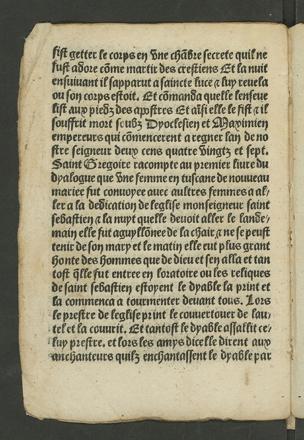 fist getter le corps en vne chãbre secrete quil ne
fust adore cõme martir des crestiens Et la nuit
ensuiuant il sapparut a saincte luce & luy reuela
ou son corps estoit. Et cõmanda quelle lenseue
list aux piedz des apostres Et aĩsi elle le fist & il
souffrit mort soubz Dyoclesien et Maximien
empereurs qui cõmencerent a regner lan de no
stre seigneur deux cens quatre vingtz et sept.
Saint Gregoire racompte au premier liure du
dyalogue que vne femme en tuscane de nouueau
mariee fut conuoyee auec aultres femmes a al-
ler a la dedication de leglise monseigneur saint
sebastien & la nuyt quelle deuoit aller le lande-
main elle fut aguyllõnee de la chair & ne se peust
tenir de son mary et le matin elle eut plus grant
honte des hommes que de dieu et sen alla et tan
tost q̃lle fut entree en loratoire ou les reliques
de saint sebastien estoyent le dyable la print et
la commenca a tourmenter deuant tous. Lors
le prestre de leglise print le couuertouer de lau-
tel et la couurit. Et tantost le dyable assallit ce-
luy prestre. et lors les amys dicelle dirent aux
anchanteurs quilz enchantassent le dyable par